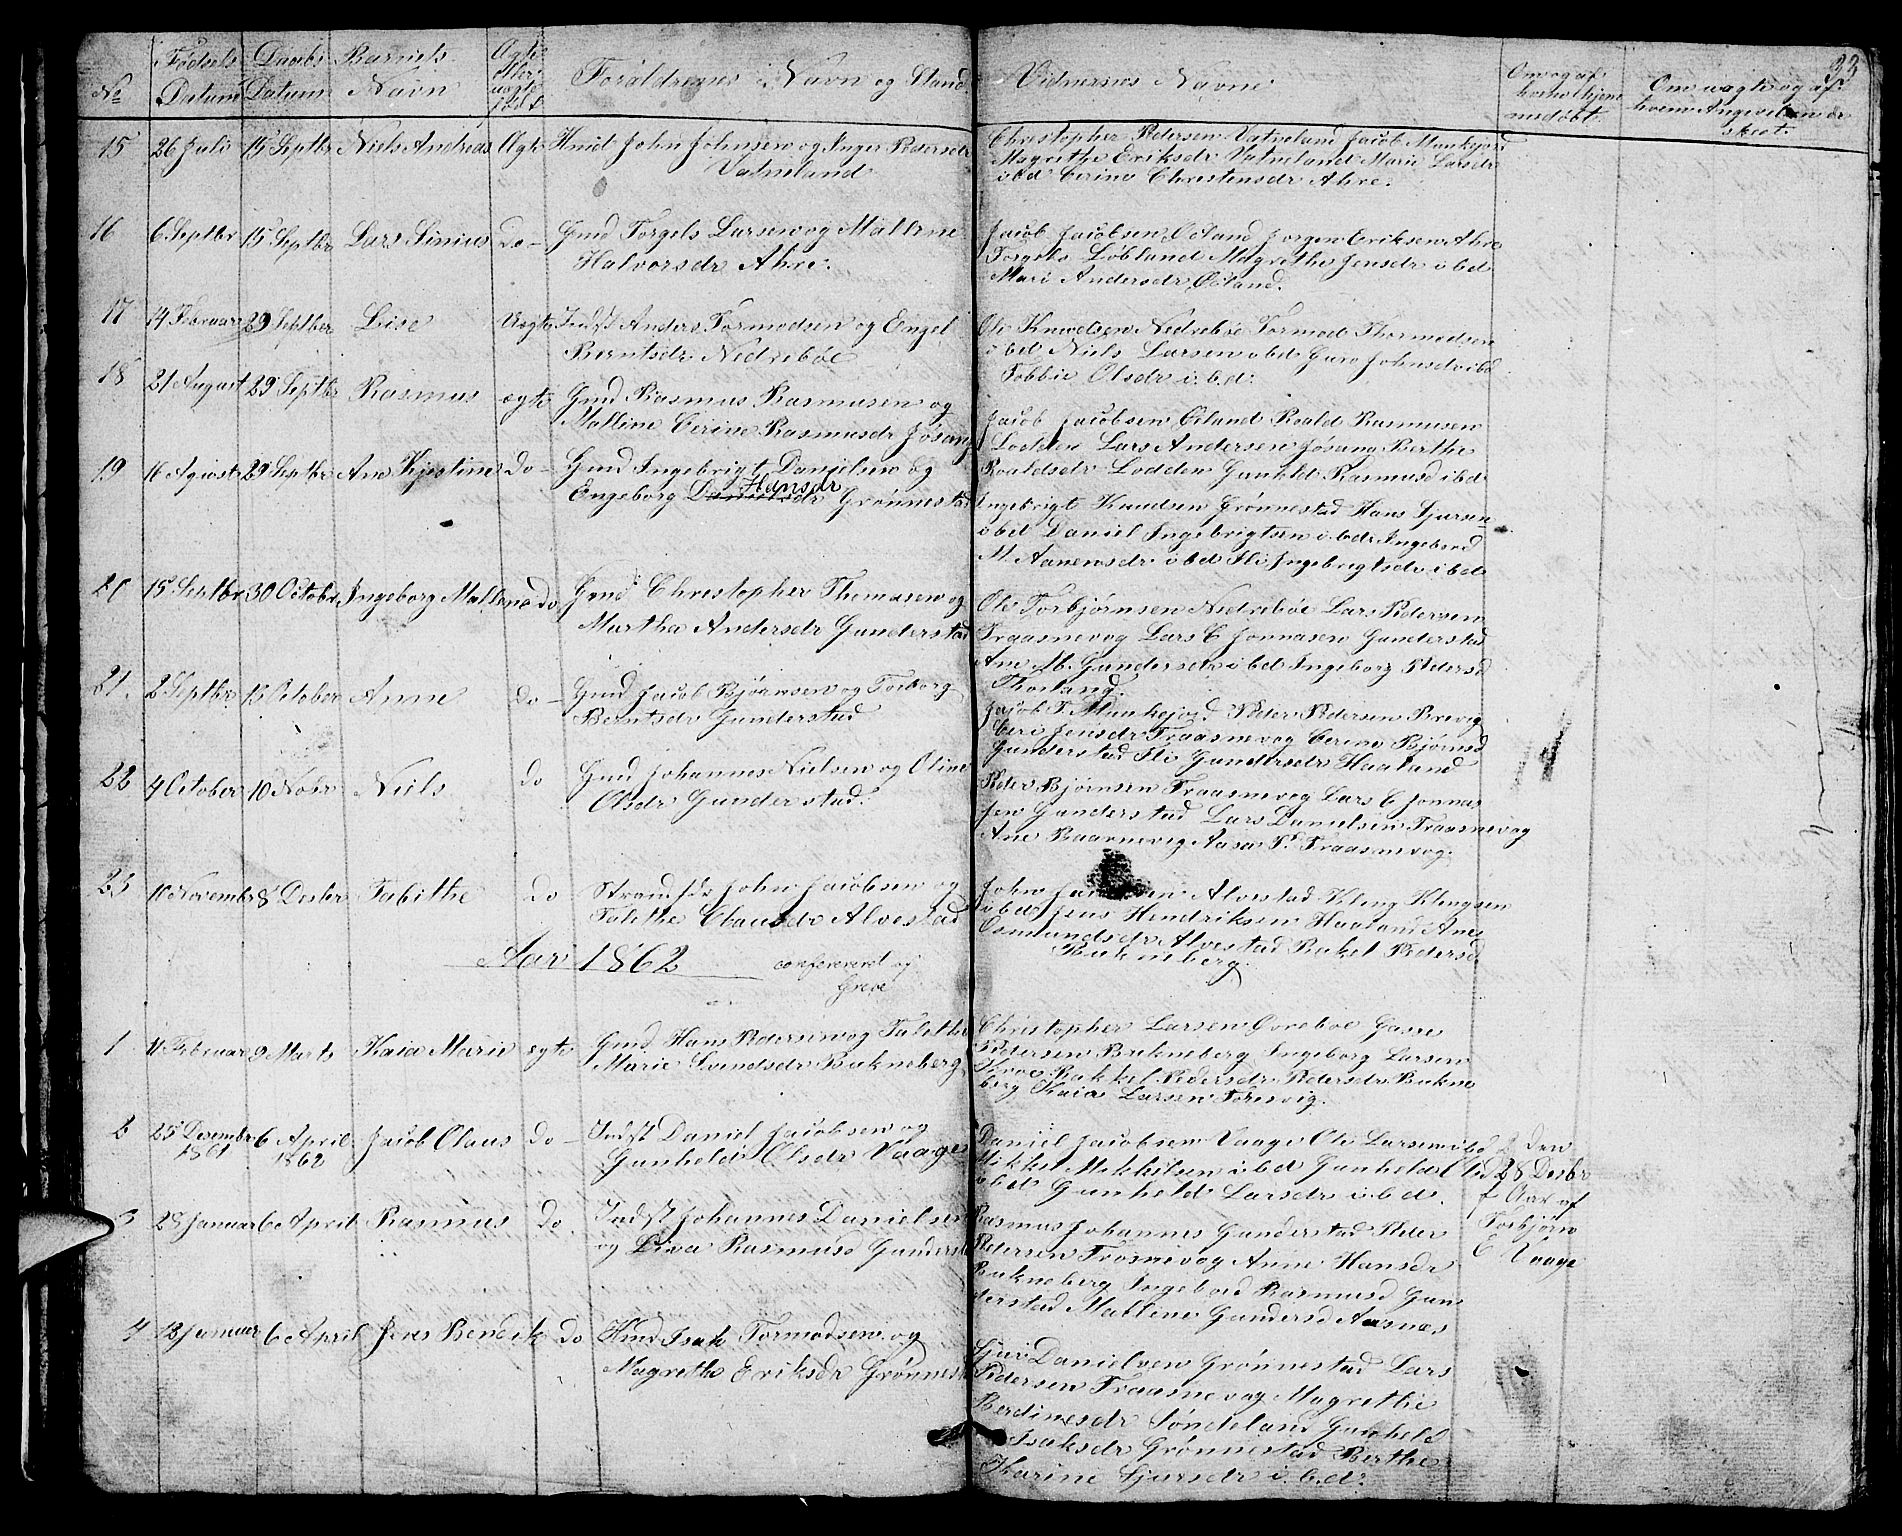 33
No
Fødsels Datum
Daabs Datum
Barnets Navn
Ægte eller uægte født
Forældrenes Navn og Stand
Vidnernes Navne
Om og af hvem hjemmedøbt.
Om vagte og af hvem Angivelsen er skeet.
15 26 Juli 15 Septbr Niels Andreas Ægte Hmd John Johnsen og Inger Pedersdr
Vatneland
Christopher Pedersen Vatneland Jacob Munkejord
Magrethe Eriksdr Vatneland Marie Larsdr
ibd Cerine Christensdr Ahre.
16 6 Septbr 15 Septbr Lars Sinius Do - Gmd Torgels Larsen og Mallene
Halvorsdr Ahre.
Jacob Jacobsen Øiland Jorgen Eriksen Ahre
Torgels Løbland Magrethe Jensdr ibd
Mari Andersdr Øiland.
17 14 Februar 29 Septber Lise Uægte Indst Anders Tormodsen og Engel
Berntsdr Nedrebøe
Ole Knudsen Nedrebøe Tormod Thormodsen
ibd Niels Larsen ibd Guro Johnsdr ibd
Tobbie Olsdr i.b.d.
18 21 August 29 Septbr Rasmus ægte Gmd Rasmus Rasmusen og
Mallene Cerine Rasmusdr Jøsang
Jacob Jacobsen Øiland Roald Rasmusen
Lodden Lars Andersen Jøsang Berthe
Roaldsdr Lodden Gunhld Rasmusd ibd
19 16 Agust 29 Septbr Ane Kjestine Do - Gmd Ingebrigt Danielsen og
Hansdr
Engeborg Danielsdr Grønnestad
Ingebrigt Knudsen Grønnestad Hans Sjursen
ibd Daniel Ingebrigtsen i.bd. Ingebord
M Aanensdr ibd Sli Ingebrigtsdr ibd
20 15 Septbr 30 Octobr Ingeborg Mallene do Gmd Christopher Thomasen og
Martha Andersdr Gunderstad
Ole Torbjørnsen Nedrebøe Lars Pedersen
Traasnevog Lars C Jonnasen Gunderstad
Ane M. Gundersdr ibd Ingeborg Pedersd
Thorland.
21. 2 Septbr 13 October Anne Do - Gmd Jacob Bjørnsen og Torborg
Berntsdr Gunderstad
Jacob T Munkejord Peder Pedersen Brevig
Ceri Jensdr Traasnevog Cerine Bjørnsd
Gunderstad Sli Gundersdr Haaland
22 4 October 10 Nobr Niels Do Gmd Johannes Nielsen og Oline
Olsdr Gunderstad.
Peder Bjørnsen Traasnevog Lars C Jonnas
sen Gunderstad Lars Danielsen Traasnevog
Ane Baarnevig Aasa Pd Traasnevog.
23 10 Novembr 8 Desbr Tabithe Do Strandsd John Jacobsen og
Talethe Clausdr Alvestad
John Alvestad Kleng Klengsen
ibd Jens Hendriksen Haaland Ane
Osmundsdr Alvestad Rakel Pedersd
Bukneberg.
Aar 1862 confereret af
Greve
1 11 Februar 9 Marts Kaia Marie egte Gmd Hans Pedersen og Talethe
Marie Svendsdr Bukneberg
Christopher Larsen Ovrebøe Gasse
Pedersen Bukneberg Ingeborg Larsen
Rakkel Pedersdr Pedersdr Bukne
berg Kaia Larsen Toresvig.
2 25 Desembr 1861 6 April 1862 Jacob Claus Do - Indst Daniel Jacobsen og
Gunhelde Olsdr Vaage
Daniel Jacobsen Vaage Ole Larsen ibd
Mikkel Mikkelsen i.bd Gunhelde Olsd
ibd Gunheld Larsdr i.bd.
Den
28 Desbr
f Aar af
Torbjørn
E Vaage
3 28 Januar 6 April Rasmus Do. Indst Johannes Danielsen
og Liva Rasmusd Gunderst
Rasmus Johannes Gunderstad Peder
Pedersen Trosnevog Anne Hansdr
Bukneberg Ingebord Rasmusd Gun
derstad Mallene Gundersd Aasnæs
4 13 Januar 6 April Jens Bendik Do Hmd Isak Tormodsen og
Magrethe Eriksdr Grønnest
Sjur Danielsen Grønnestad Lars
Pedersen Traasnevog Magrethe
Berdinesdr Søndeland Gunheld
Isaksdr Grønnestad Berthe
Karine Sjursdr i.b.d.